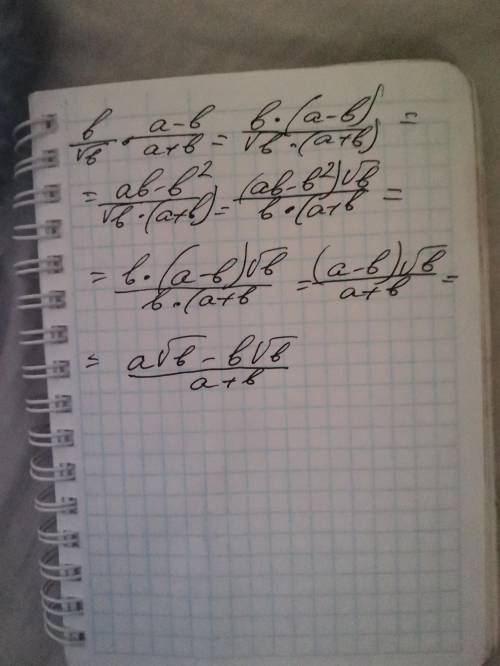 b/√b · a-b/a+b = b·(a-b)/√b·(a+b) =
= ab-b²/√b·(a+b) = (ab-b²)√b/b·(a+b =
= b·(a-b)√b/b·(a+b = (a-b)√b/a+b =
= a√b-b√b/a+b